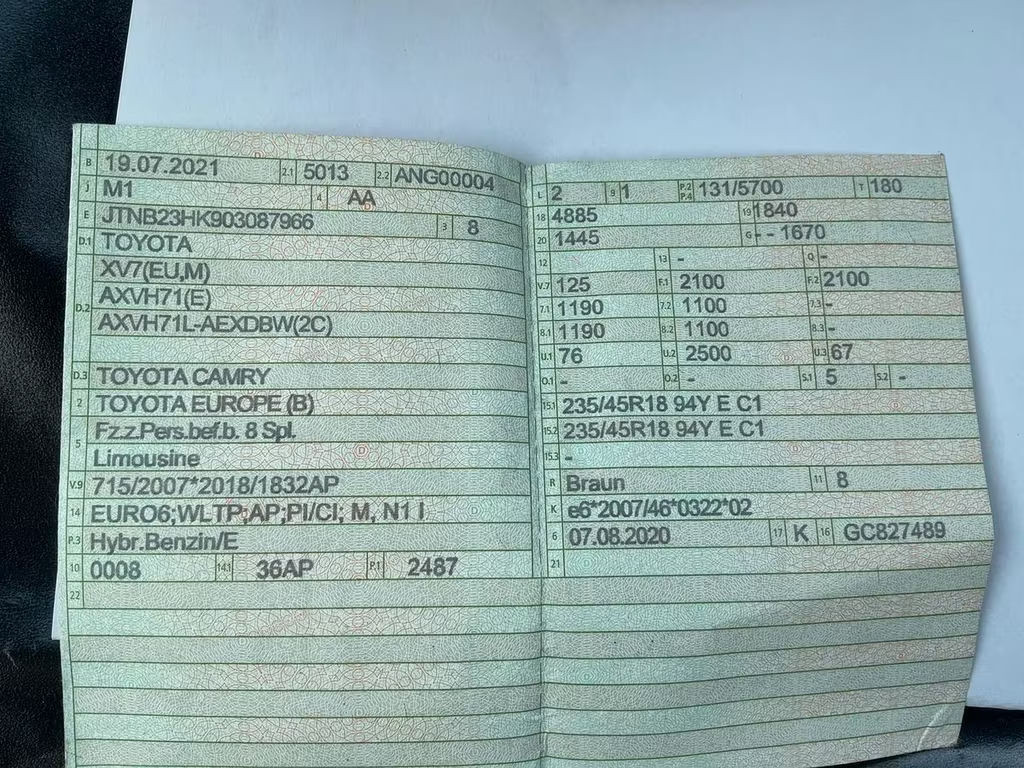 B 19.07.2021 2.1 5013 2.2 ANG00004
J M1 4 AA
E JTNB23HK903087966 3 8
D.1 TOYOTA
D.2 XV7(EU,M)
AXVH71(E)
AXVH71L-AEXDBW(2C)
D.3 TOYOTA CAMRY
2 TOYOTA EUROPE (B)
5 Fz.z.Pers.bef.b. 8 Spl.
Limousine
V.9 715/2007*2018/1832AP
14 EURO6;WLTP;AP;PI/CI; M, N1 I
P.3 Hybr.Benzin/E
10 0008 14.1 36AP P.1 2487
22
L 2 9 1 P.2 P.4 131/5700 T 180
18 4885 19 1840
20 1445 G - - 1670
12 13 - Q -
V.7 125 F.1 2100 F.2 2100
7.1 1190 7.2 1100 7.3 -
8.1 1190 8.2 1100 8.3 -
U.1 76 U.2 2500 U.3 67
O.1 - O.2 - S.1 5 S.2 -
15.1 235/45R18 94Y E C1
15.2 235/45R18 94Y E C1
15.3 -
R Braun 11 8
K e6*2007/46*0322*02
6 07.08.2020 17 K 16 GC827489
21